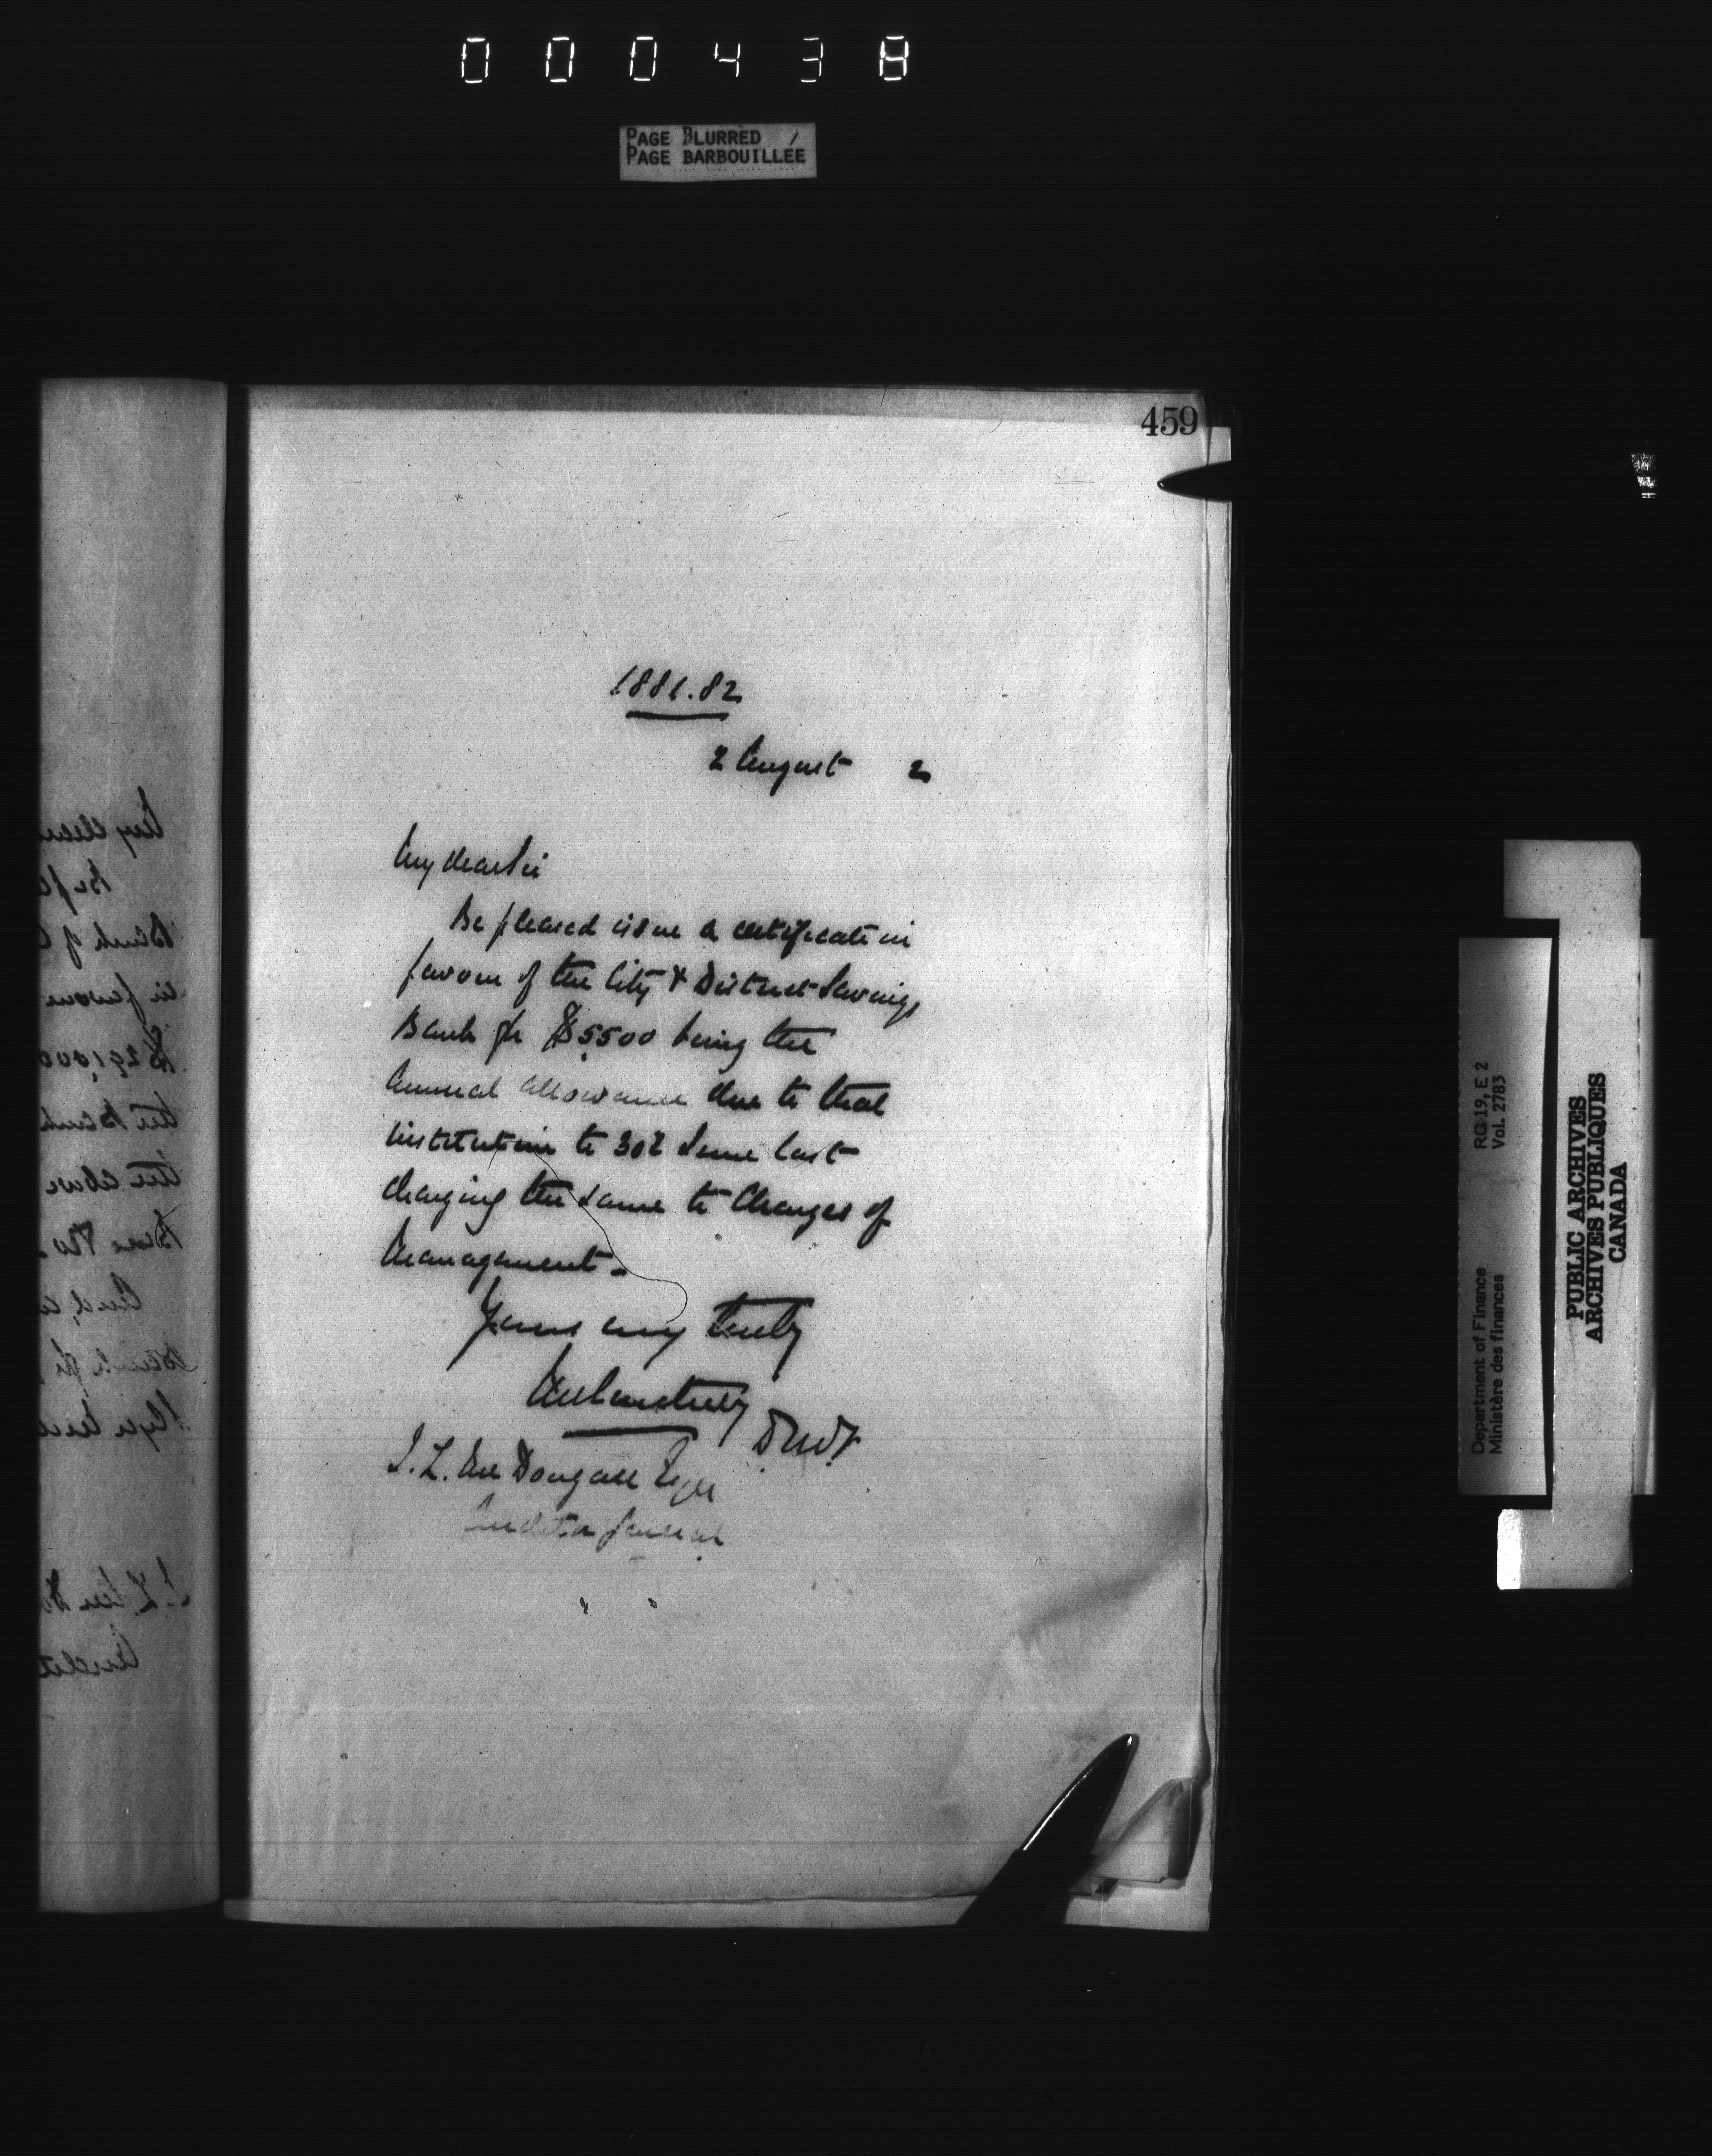 000438
PAGE BLURRED /
PAGE BARBOUILLÉE
459
1881.82
2 August 2
My dear Sir
Be pleased issue a certificate in
favour of the City & District Savings
Bank for $5500 being the
Annual allowance due to that
institution to 30th June last
charging the same to Charges of
Management.
Yours very truly
D.M.F.
J. L. McDougall Esqre
Auditor General
Department of Finance
Ministère des finances
RG 19, E 2
Vol. 2783
PUBLIC ARCHIVES
ARCHIVES PUBLIQUES
CANADA